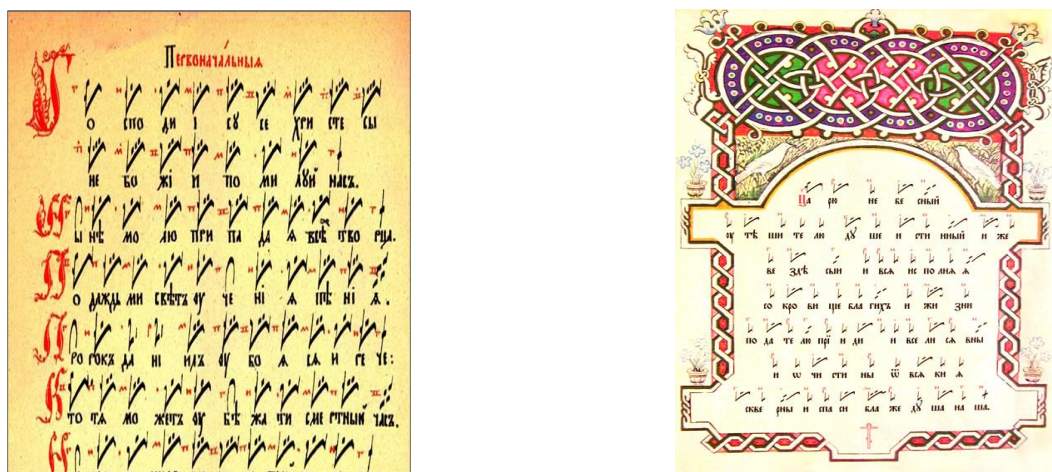 Первонача́льныя
о спо ди і су се хри сте сы
не бо жі и по ми луй насъ.
ы нѣ мо лю при па да я всѣ тво рца.
о даждь ми свѣтъ оу че ні я пѣ ні я.
ро рокъ да ни илъ оу бо я ся и ре че:
то тя мо жетъ оу бѣ жа ти сме ртный часъ.
Ца рю не бе сный
оу тѣ ши те лю ду ше и сти нный и же
ве здѣ сыи и вся ис по лняя я
со кро ви ще бла гихъ и жи зни
по да те лю прї и ди и все ли ся вны
и ѡ чи сти ны ѿ вся ки я
скве рны и спа си бла же ду ша на ша.